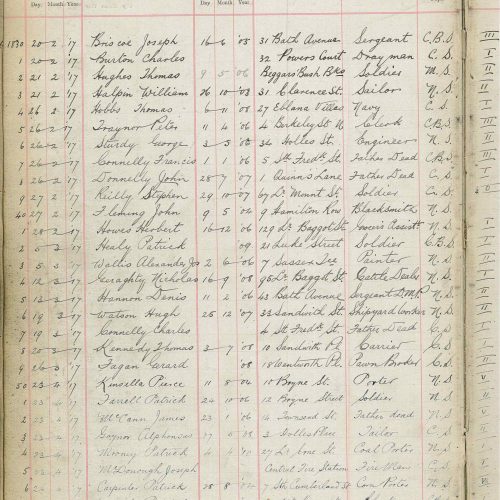 Day Month Year. Day Month Year.
1830 20 2 '17 Briscoe Joseph 16 6 '05 31 Bath Avenue Sergeant C.B.S
1 20 2 '17 Burton Charles 32 Powers Court Drayman C.S.
2 21 2 '17 Hughes Thomas 9 5 06 Beggars Bush Bks Soldier M.S.
3 21 2 '17 Halpin William 26 10 '03 31 Clarence St. Sailor N.S.
4 26 2 '17 Hobbs Thomas 6 11 '08 27 Eblana Villas Navy C.S.
5 26 2 '17 Traynor Peter 11 4 06 4 Berkeley St. N Clerk C.B.S
6 26 2 '17 Sturdy George 3 3 34 Holles St. Engineer N.S.
7 26 2 '17 Connelly Francis 1 1 '06 5 Sth Fredk St. Father Dead C.B.S
8 26 2 '17 Donnelly John 28 7 '07 1 Quinn's Lane Father Dead C.S.
9 27 2 '17 Reilly Stephen 29 10 '07 67 Lr. Mount St. Soldier C.S.
40 27 2 '17 Fleming John 9 5 02 9 Hamilton Row Blacksmith N.S.
1 28 2 '17 Howes Herbert 16 12 '06 129 Lr. Baggot St.
2 5 3 '17 Healy Patrick '09 21 Luke Street Soldier C.B.S
3 5 3 '17 Wallis Alexander Jos 2 6 '06 7 Sussex Tce Painter N.S.
4 12 3 '17 Geraghty Nicholas 16 9 '08 95 Lr. Baggot St. Cattle Dealer N.S.
5 13 3 '17 Hannon Denis 11 2 06 43 Bath Avenue Sergeant D.M.P. N.S.
6 19 3 '17 Watson Hugh 25 12 '07 33 Sandwith St. Shipyard Worker N.S.
7 19 3 '17 Connelly Charles 4 St Fredk St. Father Dead C.S.
8 20 3 '17 Kennedy Thomas 3 7 '08 10 Sandwith Pl. Carrier C.S.
9 26 3 '17 Fagan Gerard '08 18 Wentworth Pl. Pawn Broker C.S.
50 23 4 '17 Kinsella Pierce 11 8 04 15 Boyne St. Porter N.S.
1 23 4 '17 Farrell Patrick 24 10 06 12 Boyne Street Soldier N.S.
2 23 4 '17 McCann James 23 1 06 14 Townsend St. Father dead N.S.
3 23 4 '17 Alphonsus 3 Holles Place Tailor C.S.
4 23 4 '17 Mooney Patrick 4 27 Coal Porter N.S.
5 23 4 '17 McDonough Joseph Central Fire Station Fire Man C.S.
6 23 4 '17 Carpenter Patrick 28 8 Cumberland St Corn Porter N.S.